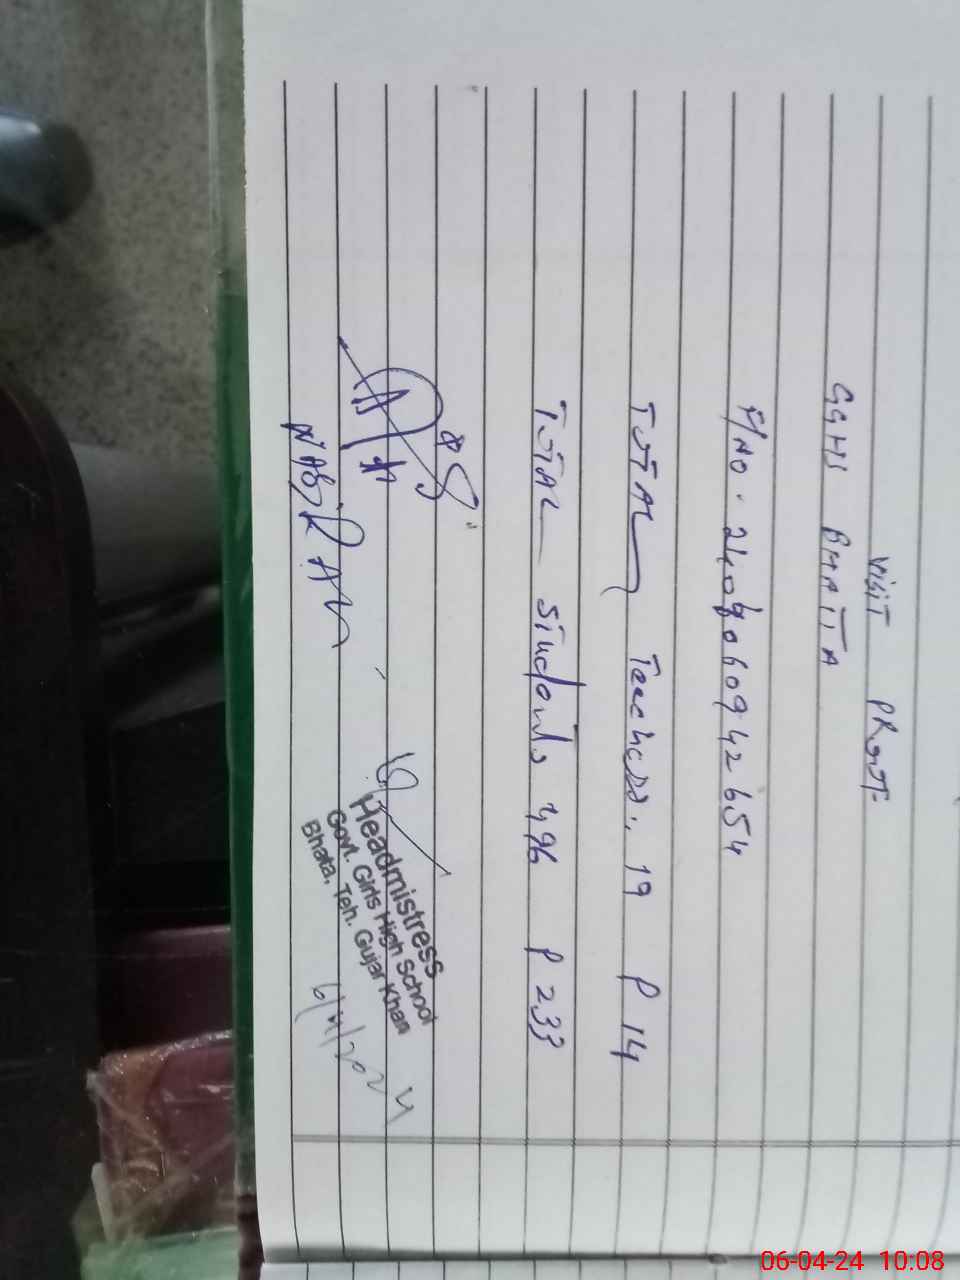 VISIT PROOF
GGHS BHATTA
TOTAL Teachers. 19 P 14
TOTAL Students 496 P 233
Headmistress
Govt. Girls High School
Bhata, Teh. Gujar Khan
6/4/2024
06-04-24 10:08